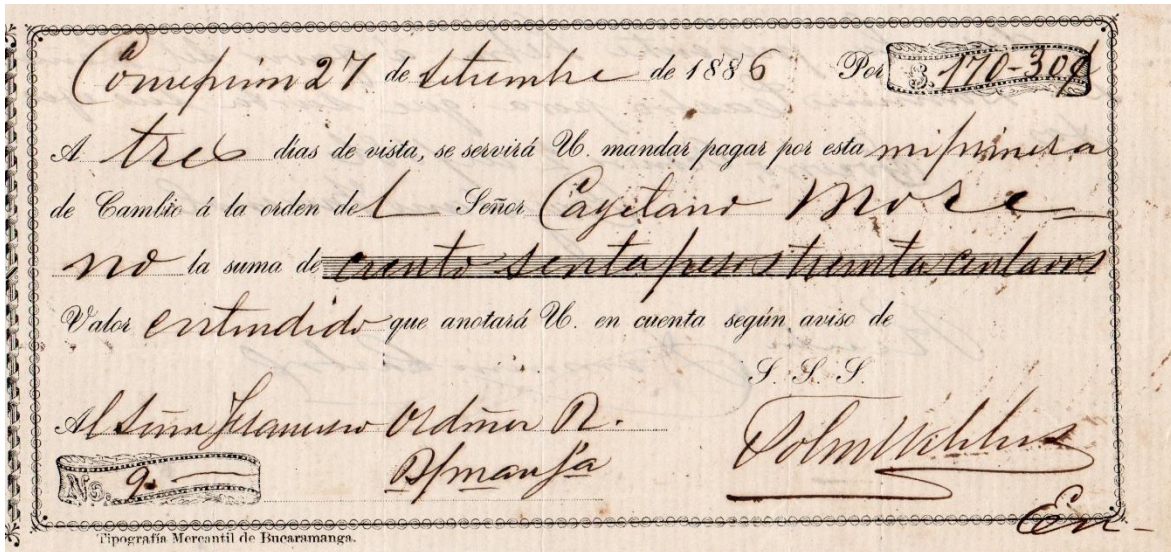 Concepcion 27 de Setiembre de 1886 Por $. 170-30¢
A tres dias de vista, se servirá U. mandar pagar por esta mi primera
de Cambio á la orden del Señor Cayetano More-
no la suma de ciento setenta pesos treinta centavos
Valor entendido que anotará U. en cuenta según aviso de
S. S. S.
Al Señor Francisco Ordoñez R.
B/manga
No. 9.
En-
Tipografía Mercantil de Bucaramanga.